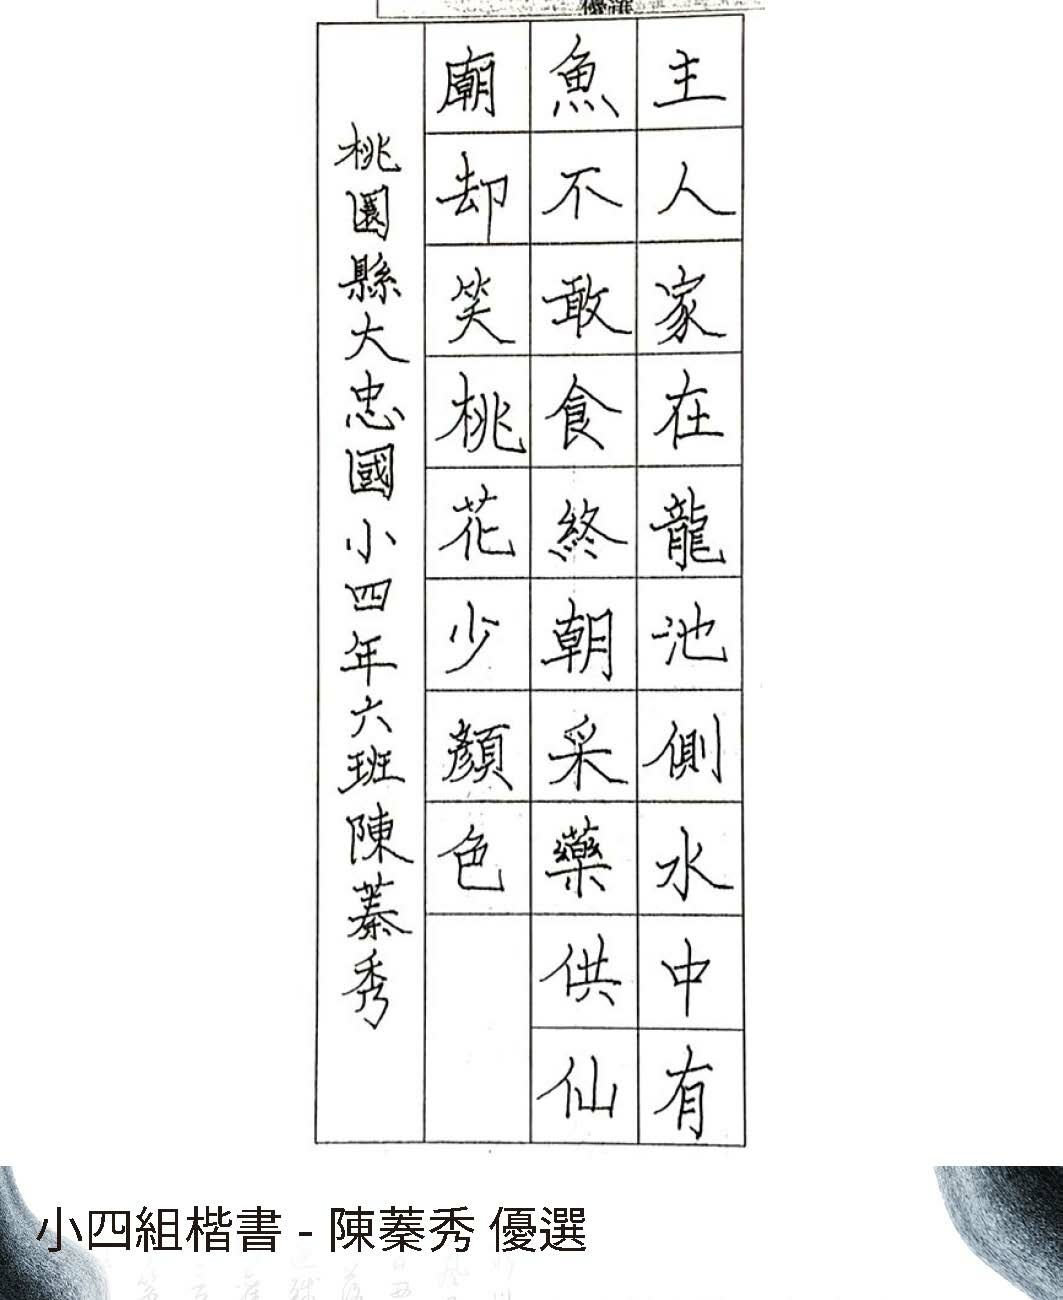 優選
主人家在龍池側水中有
魚不敢食終朝采藥供仙
廟却笑桃花少顏色
桃園縣大忠國小四年六班陳蓁秀
小四組楷書 - 陳蓁秀 優選